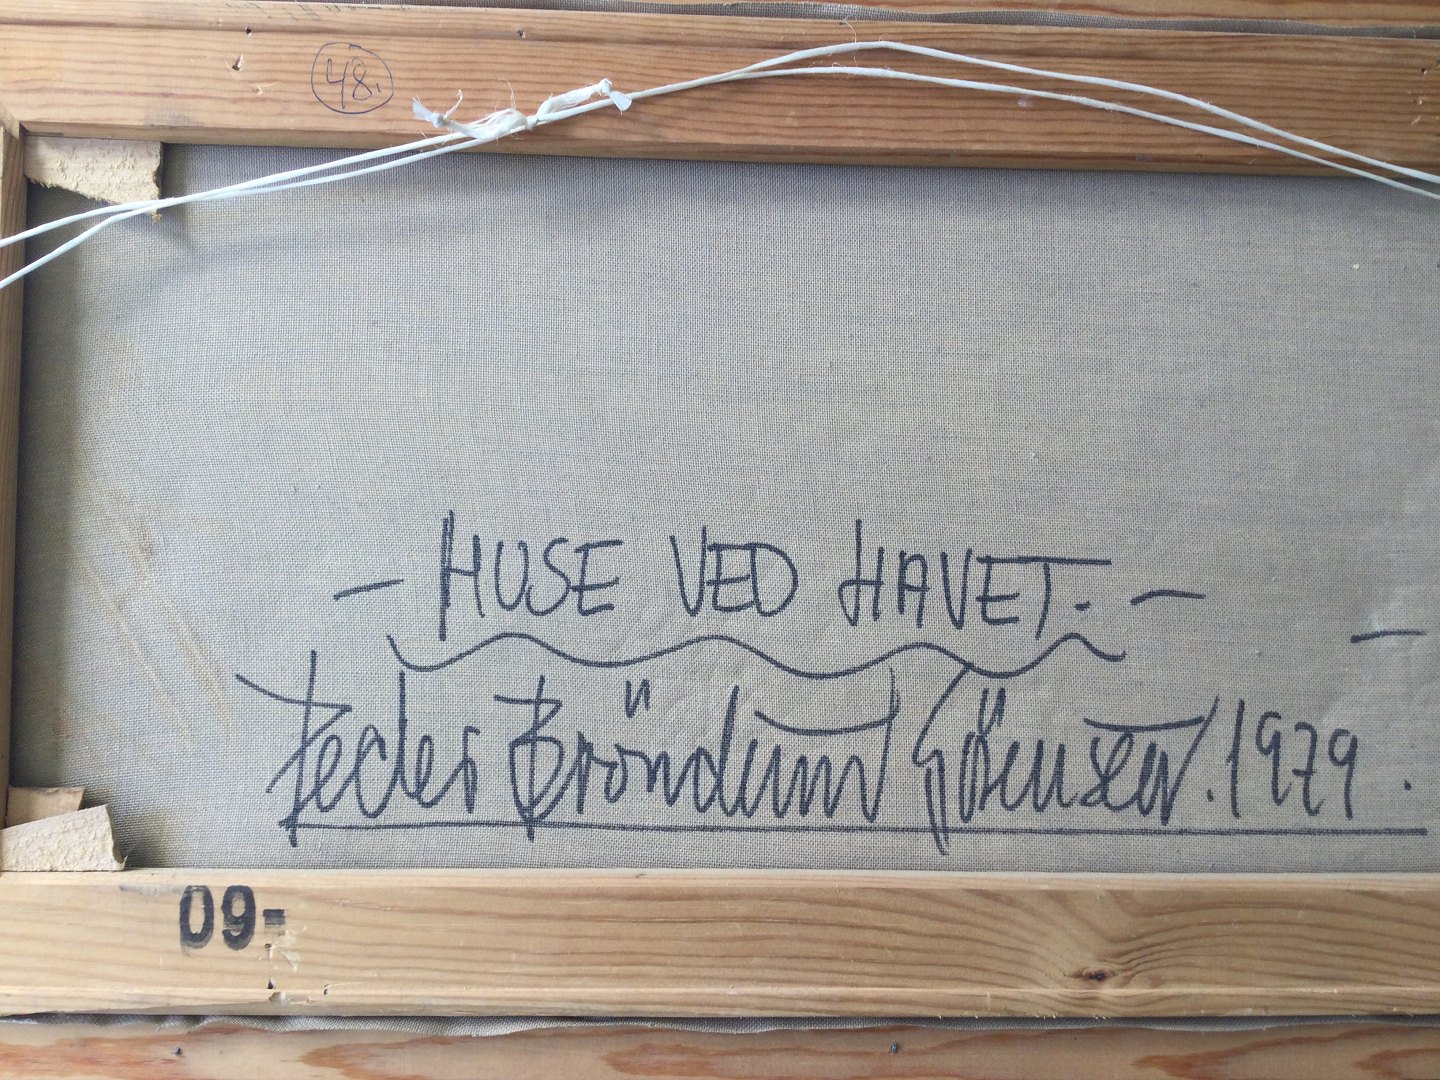 48.
– HUSE VED HAVET. –
Peder Bröndum Sörensen. 1979.
09-